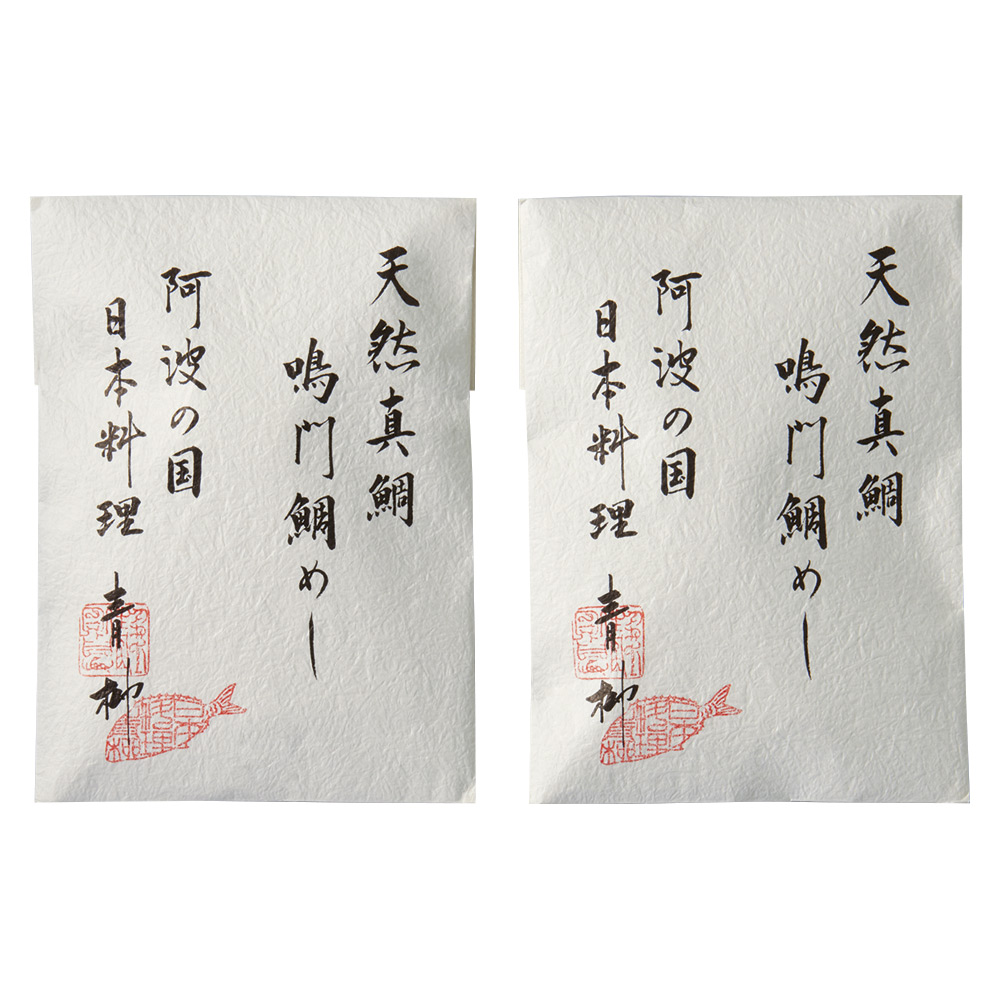 天然真鯛
鳴門鯛めし
阿波の国
日本料理 青柳
天然真鯛
鳴門鯛めし
阿波の国
日本料理 青柳